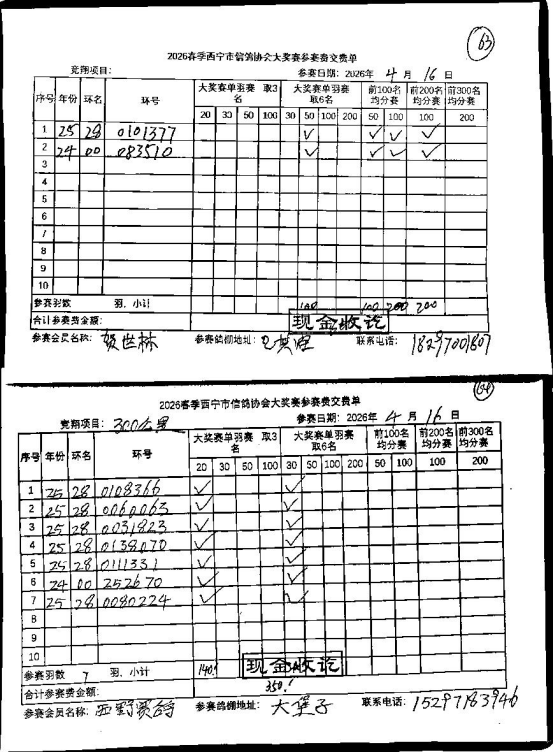 63
2026春季西宁市信鸽协会大奖赛参赛费交费单
竞翔项目： 参赛日期：2026年 4 月 16 日
序号 年份 环名 环号 大奖赛单羽赛 取3名 大奖赛单羽赛 取6名 前100名均分赛 前200名均分赛 前300名均分赛
20 30 50 100 30 50 100 200 50 100 100 200
1 25 28 0101377 ✓ ✓ ✓ ✓
2 24 00 083510 ✓ ✓ ✓ ✓
3
4
5
6
7
8
9
10
参赛羽数 羽、小计 100 100 200 200
合计参赛费金额： 现金收讫
参赛会员名称： 参赛鸽棚地址： 联系电话：18297001807
64
2026春季西宁市信鸽协会大奖赛参赛费交费单
竞翔项目：300公里 参赛日期：2026年 4 月 16 日
序号 年份 环名 环号 大奖赛单羽赛 取3名 大奖赛单羽赛 取6名 前100名均分赛 前200名均分赛 前300名均分赛
20 30 50 100 30 50 100 200 50 100 100 200
1 25 28 0108366 ✓ ✓
2 25 28 0060063 ✓ ✓
3 25 28 0031823 ✓ ✓
4 25 28 0138070 ✓ ✓
5 25 28 0111331 ✓ ✓
6 24 00 252670 ✓ ✓
7 25 28 0080224 ✓ ✓
8
9
10
参赛羽数 7 羽、小计 140 现金收讫
合计参赛费金额： 350
参赛会员名称：西野赛鸽 参赛鸽棚地址：大堡子 联系电话：15297183946